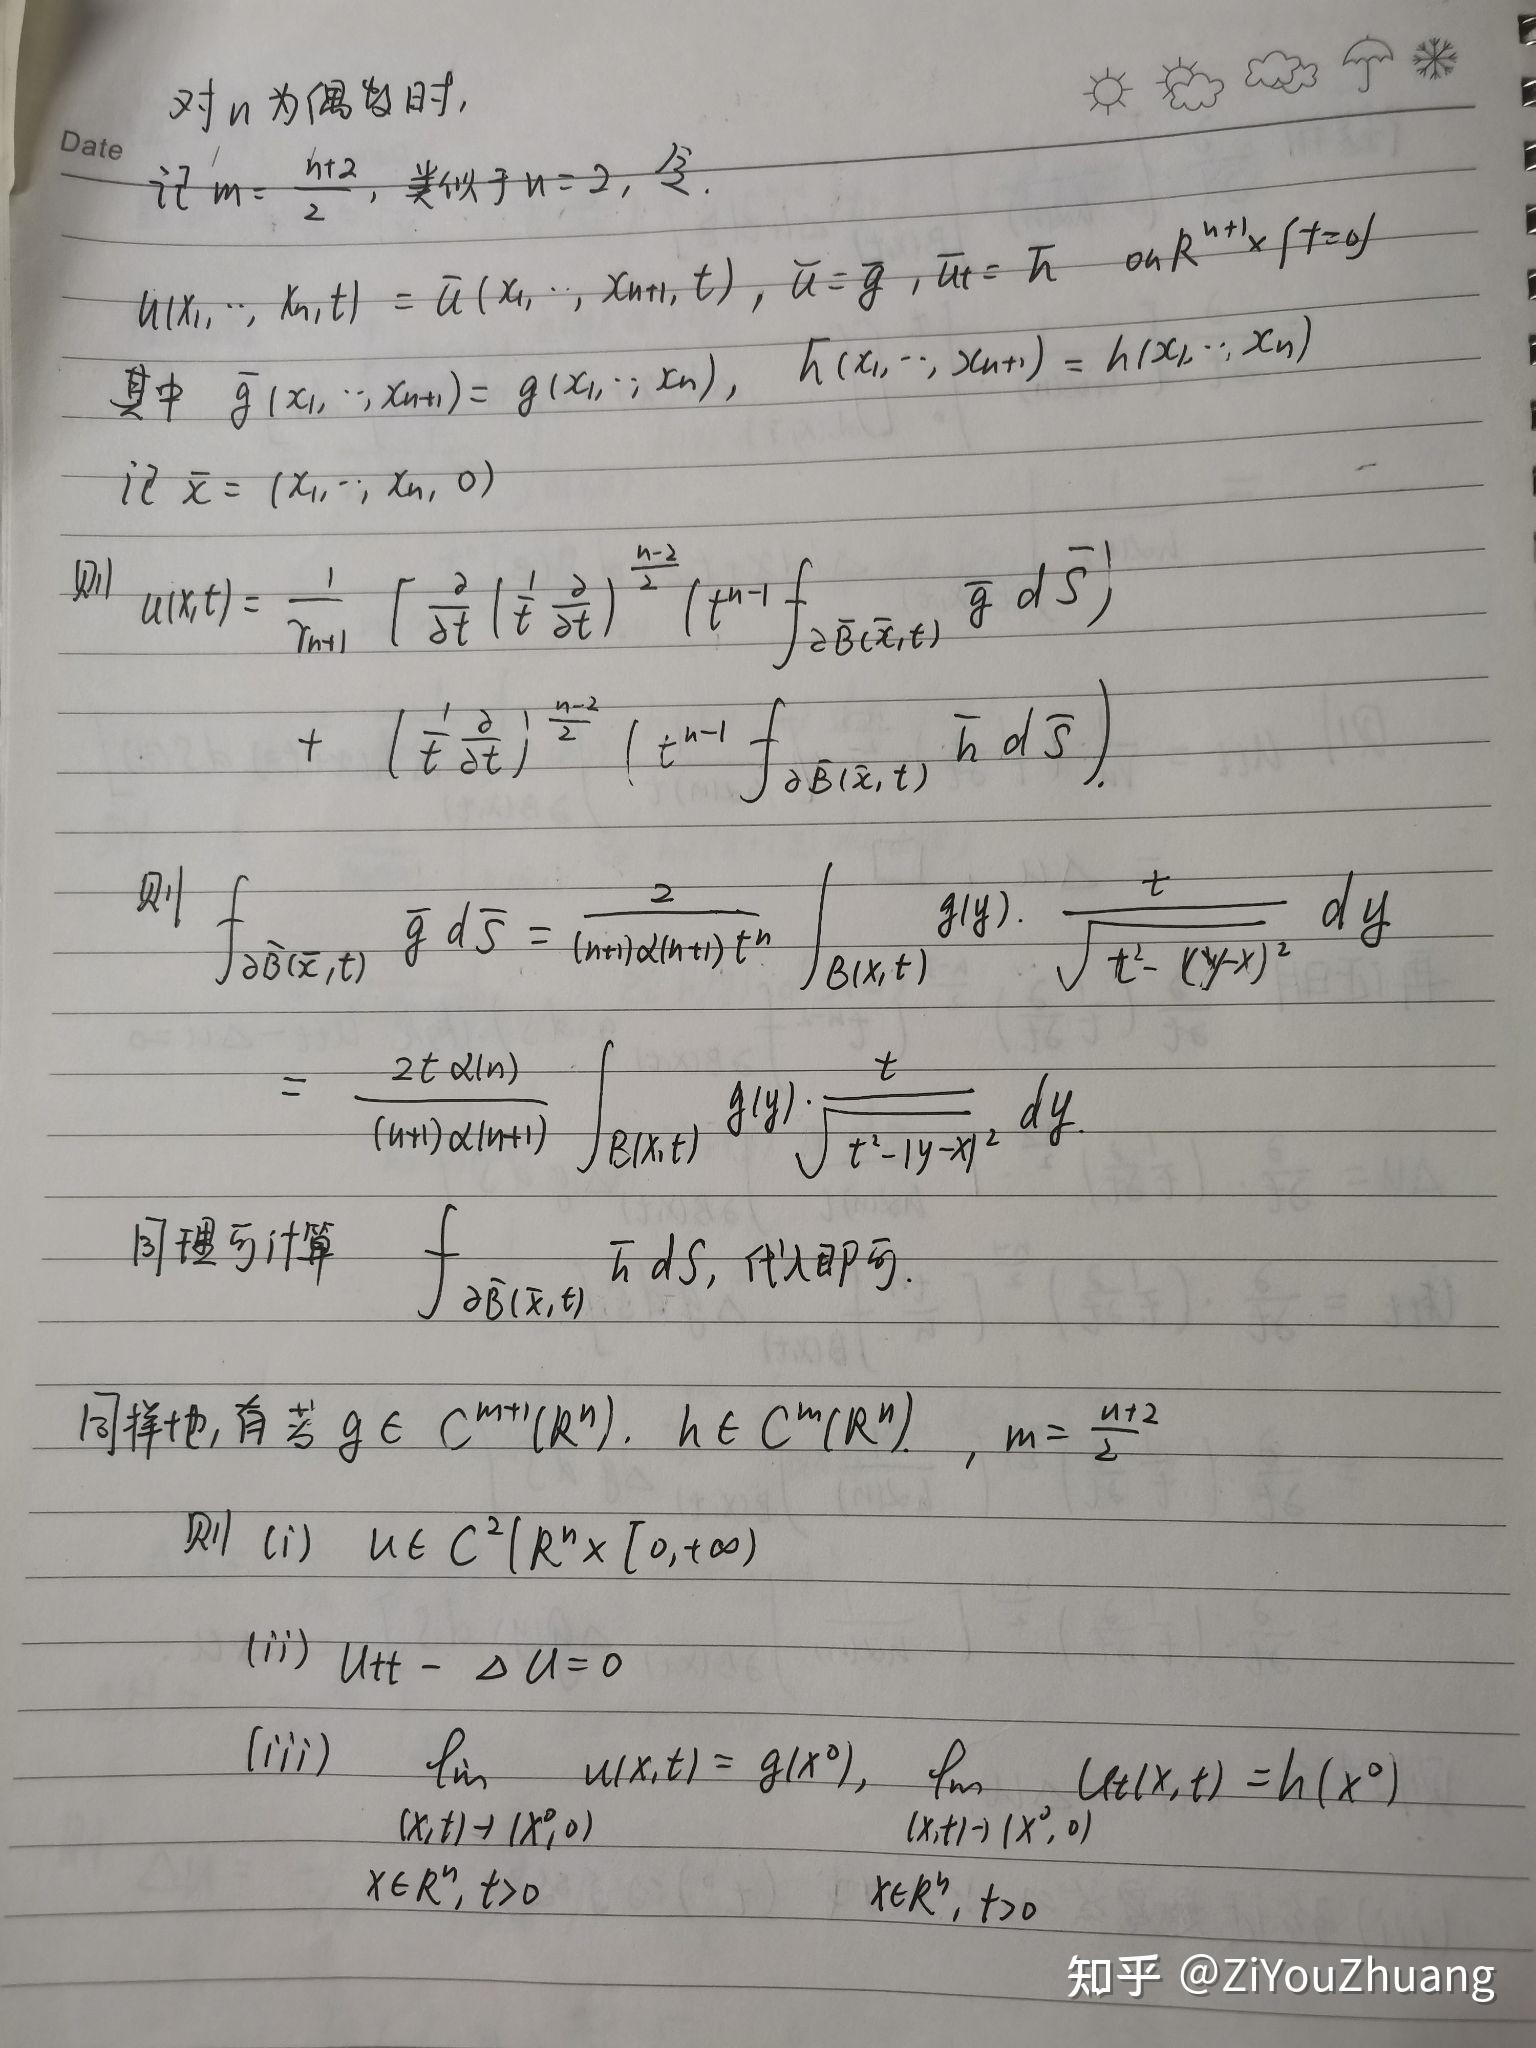 对n为偶数时,
Date
记 m = (n+2)/2, 类似于n=2, 令.
u(x₁,…,xₙ,t) = ū(x₁,…,xₙ₊₁,t), ū=ḡ, ūt= h̄ on Rⁿ⁺¹×{t=0}
其中 ḡ(x₁,…,xₙ₊₁)= g(x₁,…,xₙ), h̄(x₁,…,xₙ₊₁) = h(x₁,…,xₙ)
记 x̄ = (x₁,…,xₙ,0)
则 u(x,t) = 1/γₙ₊₁ [ ∂/∂t (1/t ∂/∂t)^((n-2)/2) (tⁿ⁻¹ ⨍_{∂B̄(x̄,t)} ḡ dS̄)
+ (1/t ∂/∂t)^((n-2)/2) (tⁿ⁻¹ ⨍_{∂B̄(x̄,t)} h̄ dS̄).
则 ⨍_{∂B̄(x̄,t)} ḡ dS̄ = 2/((n+1)α(n+1)tⁿ) ∫_{B(x,t)} g(y)· t/√(t²-(y-x)²) dy
= 2tα(n)/((n+1)α(n+1)) ∫_{B(x,t)} g(y)· t/√(t²-|y-x|²) dy.
同理可计算 ⨍_{∂B̄(x̄,t)} h̄ dS, 代入即可.
同样地,有若 g∈ Cᵐ⁺¹(Rⁿ). h∈Cᵐ(Rⁿ). , m= (n+2)/2
则 (i) u∈ C²(Rⁿ× [0,+∞)
(ii) utt - Δu=0
(iii) lim u(x,t) = g(x⁰), lim ut(x,t) = h(x⁰)
(x,t)→(x⁰,0) (x,t)→(x⁰,0)
x∈Rⁿ, t>0 x∈Rⁿ, t>0
知乎 @ZiYouZhuang